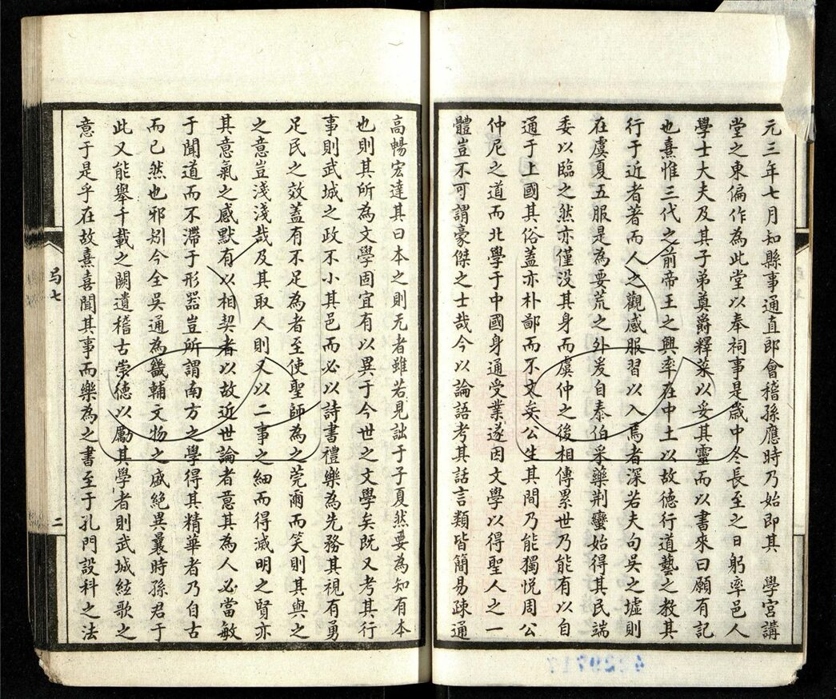 元三年七月知縣事通直郎會稽孫應時乃始即其　學宮講
堂之東偏作為此堂以奉祠事是歲中冬長至之日躬率邑人
學士大夫及其子弟奠爵釋菜以妥其靈而以書來曰願有記
也熹惟三代之前帝王之興率在中土以故德行道藝之教其
行于近者著而人之觀感服習以入焉者深若夫句吳之墟則
在虞夏五服是為要荒之外爰自泰伯采藥荆蠻始得其民端
委以臨之然亦僅没其身而虞仲之後相傳累世乃能有以自
通于上國其俗蓋亦朴鄙而不文矣公生其間乃能獨悅周公
仲尼之道而北學于中國身通受業遂因文學以得聖人之一
體豈不可謂豪傑之士哉今以論語考其話言類皆簡易疎通
高暢宏達其曰本之則无者雖若見詘于子夏然要為知有本
也則其所為文學固宜有以異于今世之文學矣既又考其行
事則武城之政不小其邑而必以詩書禮樂為先務其視有勇
足民之效蓋有不足為者至使聖師為之莞爾而笑則其與之
之意豈淺淺哉及其取人則又以二事之細而得滅明之賢亦
其意氣之感默有以相契者以故近世論者意其為人必當敏
于聞道而不滯于形器豈所謂南方之學得其精華者乃自古
而已然也邪矧今全吳通為畿輔文物之盛絶異曩時孫君于
此又能舉千載之闕遺稽古崇德以厲其學者則武城絃歌之
意于是乎在故熹喜聞其事而樂為之書至于孔門設科之法
二
4229717